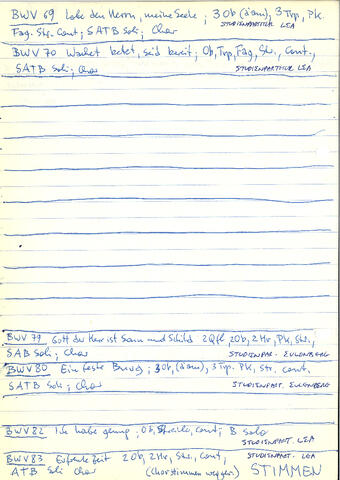 BWV 69 Lobe den Herrn, meine Seele; 3 Ob (d'am), 3 Trp, Pk.
Fag. Str. Cont; SATB Soli; Chor STUDIENPARTITUR LEA
BWV 70 Wachet betet, seid bereit; Ob, Trp, Fag, Str., Cont.,
SATB Soli; Chor STUDIENPARTITUR LEA
BWV 79 Gott der Herr ist Sonn und Schild 2 Qfl, 2 Ob, 2 Hr, Pk, Str.,
SAB Soli; Chor STUDIENPAR. EULENBERG
BWV 80 Ein feste Burg; 3 Ob, (d'am), 3 Trp. Pk, Str. Cont.
SATB Soli; Chor STUDIENPART. EULENBERG
BWV 82 Ich habe genug; Ob, Streiche, Cont; B Solo
STUDIENPARTITUR LEA
BWV 83 Erfreute Zeit 2 Ob, 2 Hr, Str., Cont STUDIENPART. LEA
ATB Soli Chor (Chorstimmen weggel.) STIMMEN